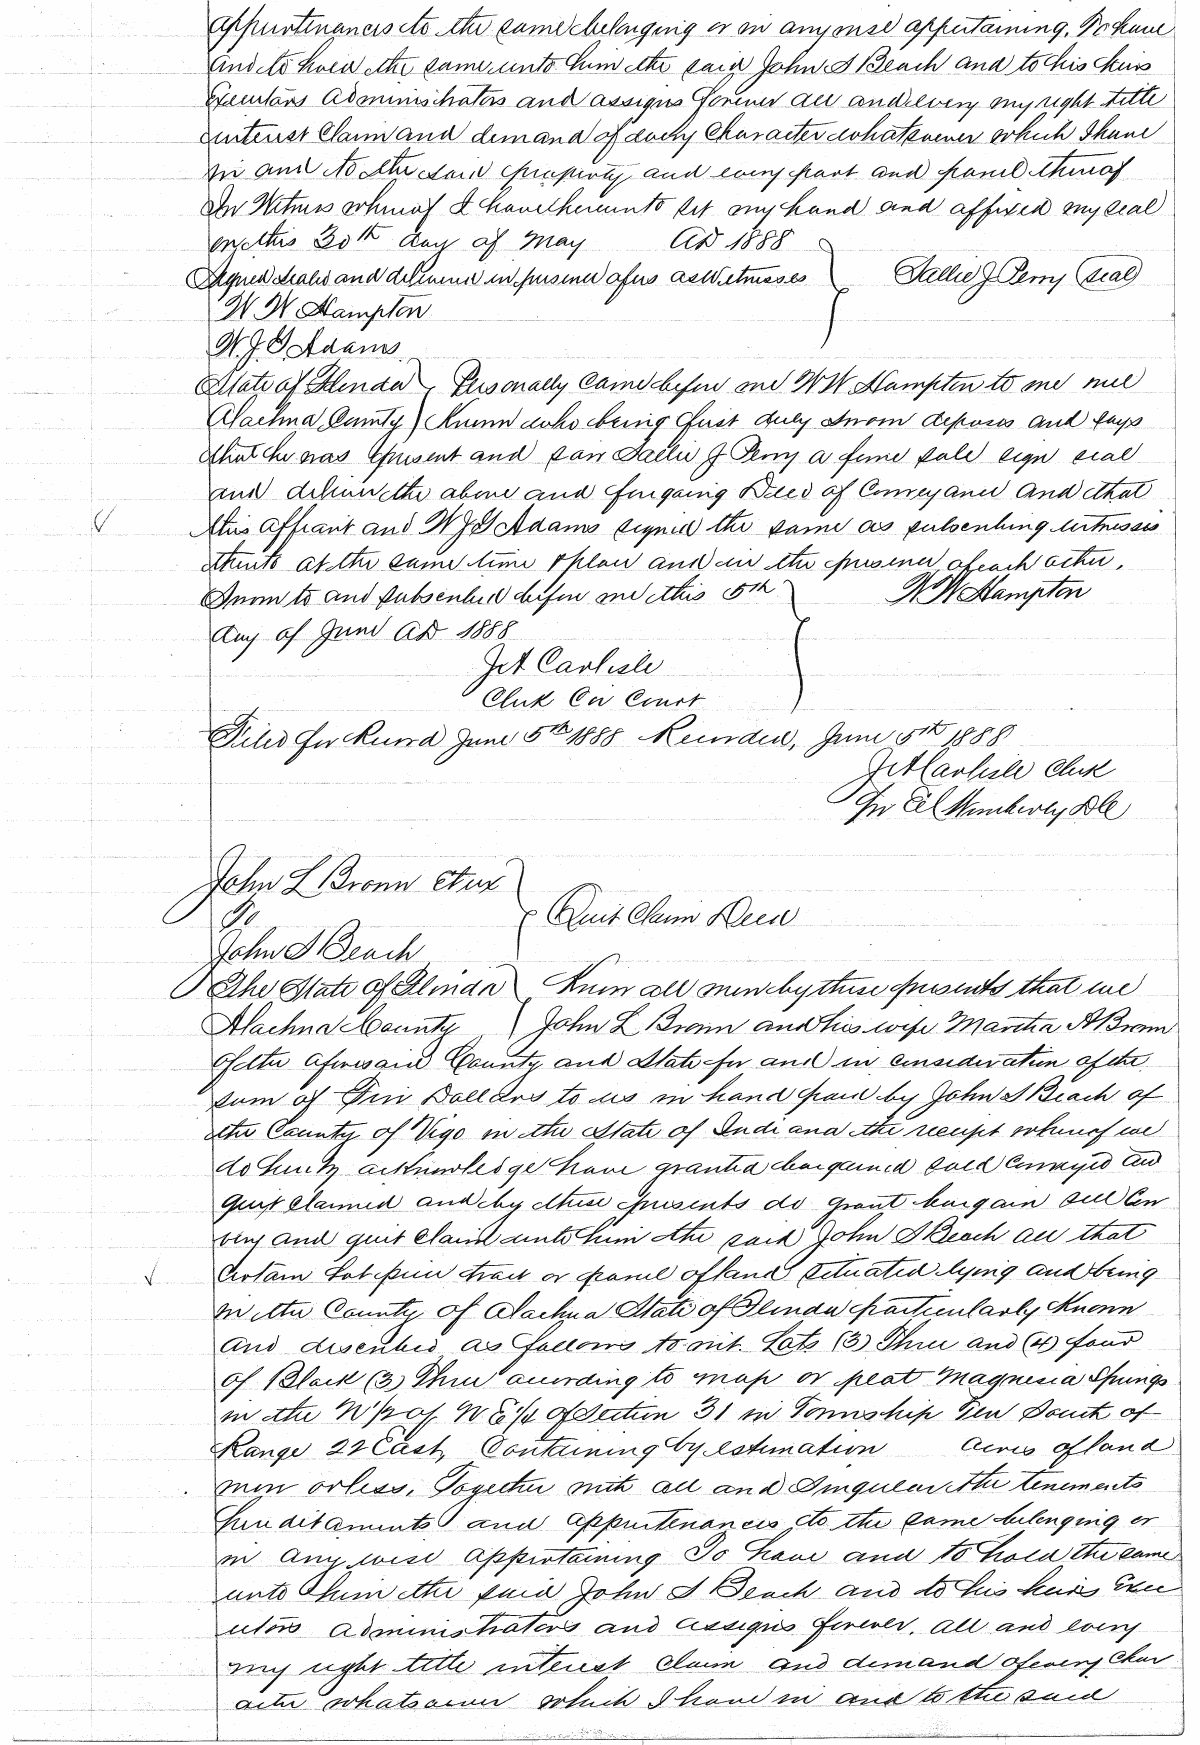 appurtenances to the same belonging or in any wise appertaining, To have
and to hold the same unto him the said John S Beach and to his heirs
Executors Administrators and assigns forever all and every my right title
interest Claim and demand of every Character whatsoever which I have
in and to the said property and every part and parcel thereof
In Witness whereof I have hereunto set my hand and affixed my seal
on this 30th day of May AD 1888
Signed sealed and delivered in presence of us as Witnesses Sallie J Perry (seal)
W W Hampton
W. J. G Adams
State of Florida Personally Came before me W W Hampton to me well
Alachua County Known who being first duly sworn deposes and says
that he was present and saw Sallie J Perry a feme sole sign seal
and deliver the above and foregoing Deed of Conveyance and that
this affiant and W J G Adams signed the same as subscribing witnesses
thereto at the same time & place and in the presence of each other,
Sworn to and subscribed before me this 5th W W Hampton
day of June AD 1888
Jet Carlisle
Clerk Cir Court
Filed for Record June 5th 1888 Recorded, June 5th 1888
Jet Carlisle Clerk
Wimberly DC
John L Brown et ux
To Quit Claim Deed
John S Beach
The State of Florida Know all men by these presents that we
Alachua County John L Brown and his wife Martha A Brown
of the aforesaid County and State for and in consideration of the
sum of Five Dollars to us in hand paid by John S Beach of
the County of Vigo in the State of Indiana the receipt whereof we
do hereby acknowledge have granted bargained sold conveyed and
quit claimed and by these presents do grant bargain sell Con
vey and quit claim unto him the said John S Beach all that
Certain Lot piece tract or parcel of land situated lying and being
in the County of Alachua State of Florida particularly Known
and described as follows to wit. Lots (3) Three and (4) four
of Block (3) Three according to map or plat Magnesia Springs
in the N 1/2 of N E 1/4 of Section 31 in Township Ten South of
Range 22 East, Containing by estimation acres of land
more or less, Together with all and Singular the tenements
hereditaments and appurtenances to the same belonging or
in any wise appertaining To have and to hold the same
unto him the said John S Beach and to his heirs Exec
utors administrators and assigns forever, all and every
my right title interest claim and demand of every Char
acter whatsoever which I have in and to the said